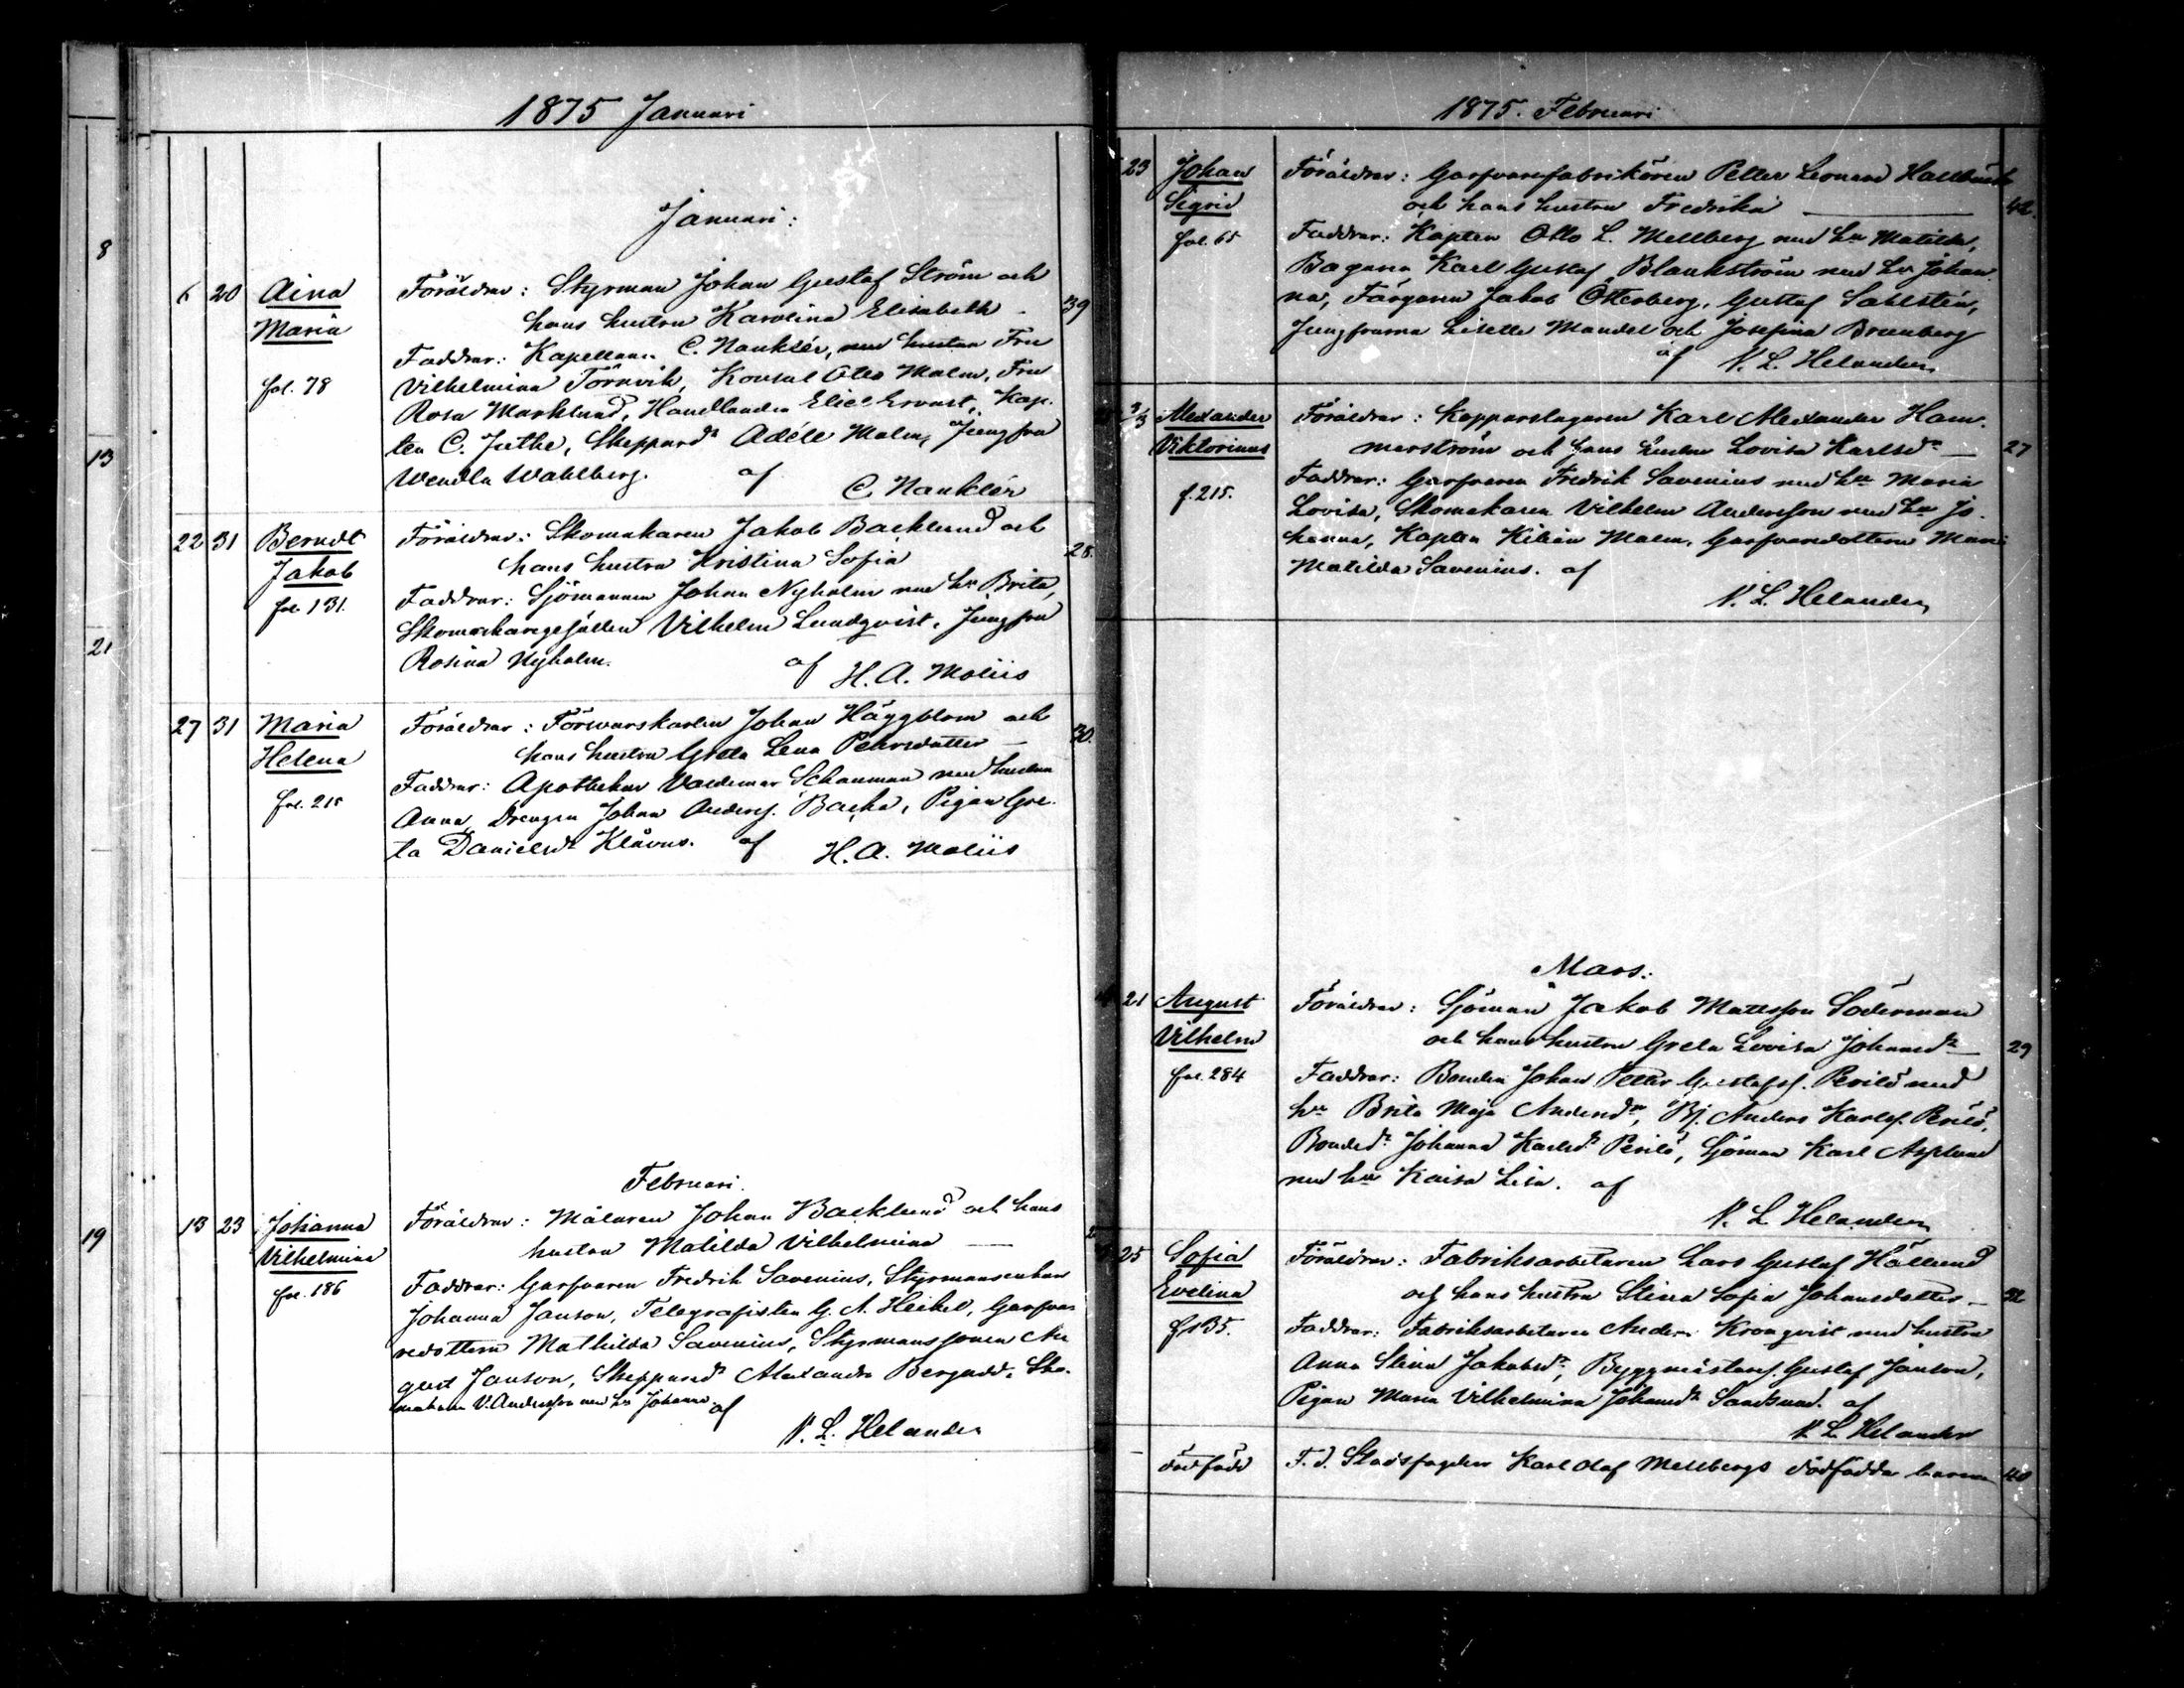 1875 Januari
Januari:
8
13
21
19
6 20 Aina Maria fol. 78
Föräldrar: Styrman Johan Gustaf Ström och
hans hustru Karolina Elisabeth - 39
Faddrar: Kapellan C. Nauklér, med hustru Fru
Vilhelmina Törnvik, Konsul Otto Malm, Fru
Rosa Marklund, Handlanden Eliel Ervast, Kap-
ten C. Juthe, Skeppared. Adéle Malm, Jungfru
Wendla Wahlberg. af C. Nauklér
22 31 Berndt Jakob fol. 131.
Föräldrar: Skomakaren Jakob Backlund och
hans hustru Kristina Sofia 28.
Faddrar: Sjömannen Johan Nyholm med hu Brita,
Skomakaregesällen Vilhelm Lundqvist, Jungfru
Rosina Nyholm. af H. A. Moliis
27 31 Maria Helena fol. 215
Föräldrar: Försvarskarlen Johan Häggblom och
hans hustru Greta Lena Pehrsdotter — 30.
Faddrar: Apothekar Valdemar Schauman med hustru
Anna, Drengen Johan Andersf. Backa, Pigan Gre-
ta Danielsdr Klåvus. af H. A. Moliis
Februari.
13 23 Johanna Vilhelmina fol. 186
Föräldrar: Målaren Johan Backlund och hans
hustru Matilda Vilhelmina —
Faddrar: Garfvaren Fredrik Savenius, Styrmansenkan
Johanna Janson, Telegrafisten G. A. Heikel, Garfva-
redottern Mathilda Savenius, Styrmanssonen Au-
gust Janson, Skeppared. Alexandra Bergudd, Sko-
makaren V. Andersson med hu Johanna. af
K. L. Helander
1875. Februari
23 Johan Sigrid fol. 65
Föräldrar: Garfvarefabrikören Petter Leonard Hallbäck
och hans hustru Fredrika — 42.
Faddrar: Kapten Otto L. Mellberg med hu Matilda,
Bagaren Karl Gustaf Blankström med hu Johan-
na, Färgaren Jakob Otterberg, Gustaf Sahlstén,
Jungfrurna Lisette Mandel och Josefina Brunberg
af K. L. Helander
2/3 Alexander Viktorinus f. 215.
Föräldrar: Kopparslagaren Karl Alexander Ham-
merström och hans hustru Lovisa Karlsdr — 27
Faddrar: Garfvaren Fredrik Savenius med hu Maria
Lovisa, Skomakaren Vilhelm Andersson med hu Jo-
hanna, Kapten Kilian Malm, Garfvaredottern Maria
Matilda Savenius. af
K. L. Helander
Mars.
21 August Vilhelm fol. 284
Föräldrar: Sjöman Jakob Mattsson Söderman
och hans hustru Greta Lovisa Johansdr — 29
Faddrar: Bonden Johan Petter Gustafsf. Perilö med
hu Brita Maja Andersdr, Bj. Anders Karlsf. Perilö,
Bonded. Johanna Karlsdr Perilö, Sjöman Karl Asplund
med hu Kaisa Lisa. af
K. L. Helander
25 Sofia Evelina f. 135.
Föräldrar: Fabriksarbetaren Lars Gustaf Hällund
och hans hustru Stina Sofia Johansdotter —
Faddrar: Fabriksarbetaren Anders Kronqvist med hustru
Anna Stina Jakobsdr, Byggmästaref. Gustaf Janson,
Pigan Maria Vilhelmina Johansdr Sandsund. af
K. L. Helander
- dödfödd F.d. Stadsfogden Karl Olof Mellbergs dödfödda barn 40